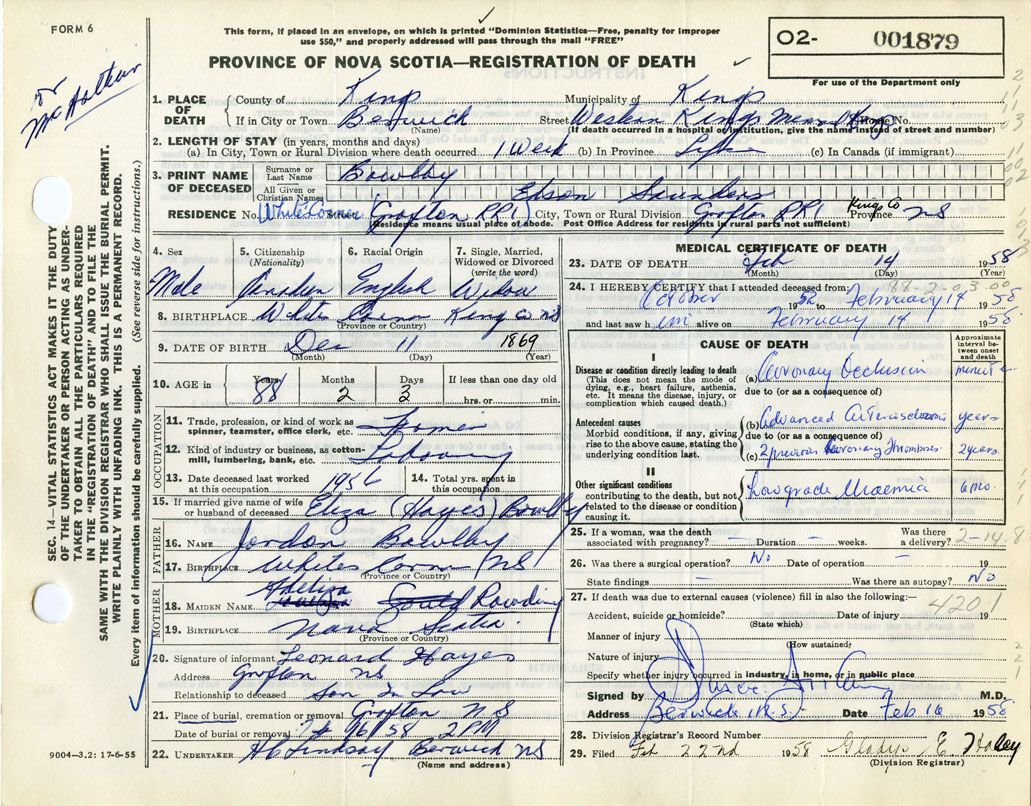 FORM 6
This form, if placed in an envelope, on which is printed "Dominion Statistics—Free, penalty for improper
use $50," and properly addressed will pass through the mail "FREE"
PROVINCE OF NOVA SCOTIA—REGISTRATION OF DEATH
O2- 001879
For use of the Department only
or
McArthur
SEC. 14—VITAL STATISTICS ACT MAKES IT THE DUTY
OF THE UNDERTAKER OR PERSON ACTING AS UNDER-
TAKER TO OBTAIN ALL THE PARTICULARS REQUIRED
IN THE "REGISTRATION OF DEATH" AND TO FILE THE
SAME WITH THE DIVISION REGISTRAR WHO SHALL ISSUE THE BURIAL PERMIT.
WRITE PLAINLY WITH UNFADING INK. THIS IS A PERMANENT RECORD.
Every item of information should be carefully supplied. (See reverse side for instructions.)
1. PLACE OF DEATH County of Kings Municipality of Kings
If in City or Town Berwick Street Western Kings Mem House No.
(Name) (If death occurred in a hospital or institution, give the name instead of street and number)
2. LENGTH OF STAY (in years, months and days)
(a) In City, Town or Rural Division where death occurred 1 Week (b) In Province Life (c) In Canada (if immigrant)
3. PRINT NAME OF DECEASED Surname or Last Name Bowlby
All Given or Christian Names Edson Saunders
RESIDENCE No. Whites Corner Grafton RR1 City, Town or Rural Division Grafton RR1 Kings Co Province NS
Residence means usual place of abode. Post Office Address for residents in rural parts not sufficient)
4. Sex 5. Citizenship (Nationality) 6. Racial Origin 7. Single, Married, Widowed or Divorced (write the word)
Male Canadian English Widow
8. BIRTHPLACE Whites Corner Kings Co NS
(Province or Country)
9. DATE OF BIRTH Dec 11 1869
(Month) (Day) (Year)
10. AGE in Years Months Days If less than one day old
88 2 3 hrs. or min.
OCCUPATION
11. Trade, profession, or kind of work as
spinner, teamster, office clerk, etc. Farmer
12. Kind of industry or business, as cotton-
mill, lumbering, bank, etc.
13. Date deceased last worked at this occupation 1956 14. Total yrs. spent in this occupation
15. If married give name of wife
or husband of deceased Eliza (Hayes) Bowlby
FATHER
16. NAME Jordon Bowlby
17. BIRTHPLACE Whites Corner NS
(Province or Country)
MOTHER
Adeliza
18. MAIDEN NAME Rawding
19. BIRTHPLACE Nova Scotia
(Province or Country)
20. Signature of informant Leonard Hayes
Address Grafton NS
Relationship to deceased Son in Law
21. Place of burial, cremation or removal Grafton NS
Date of burial or removal Feb 16 58 2 PM
22. UNDERTAKER H C Lindsay Berwick NS
(Name and address)
9004—3.2: 17-6-55
MEDICAL CERTIFICATE OF DEATH
23. DATE OF DEATH Feb 14 1958
(Month) (Day) (Year)
24. I HEREBY CERTIFY that I attended deceased from: 88-2-03.00
October 1952 to February 14 1958
and last saw him alive on February 14 1958
CAUSE OF DEATH
Approximate interval between onset and death
I
Disease or condition directly leading to death
(This does not mean the mode of
dying, e.g., heart failure, asthenia,
etc. It means the disease, injury, or
complication which caused death.)
(a) Coronary Occlusion minute
due to (or as a consequence of)
Antecedent causes
Morbid conditions, if any, giving
rise to the above cause, stating the
underlying condition last.
(b) Advanced Arteriosclerosis years
due to (or as a consequence of)
(c) 2 previous Coronary Thromboses 2 years
II
Other significant conditions
contributing to the death, but not
related to the disease or condition
causing it.
Low grade Uraemia 6 mo.
25. If a woman, was the death
associated with pregnancy? — Duration — weeks. Was there a delivery? 2-14-8
26. Was there a surgical operation? No Date of operation — 19
State findings — Was there an autopsy? No
27. If death was due to external causes (violence) fill in also the following:—
4201
Accident, suicide or homicide? Date of injury 19
(State which)
Manner of injury
(How sustained)
Nature of injury
Specify whether injury occurred in industry, in home, or in public place
Signed by M.D.
Address Berwick, N.S. Date Feb 16 1958
28. Division Registrar's Record Number
29. Filed Feb 22nd 1958 Gladys E. Haley
(Division Registrar)